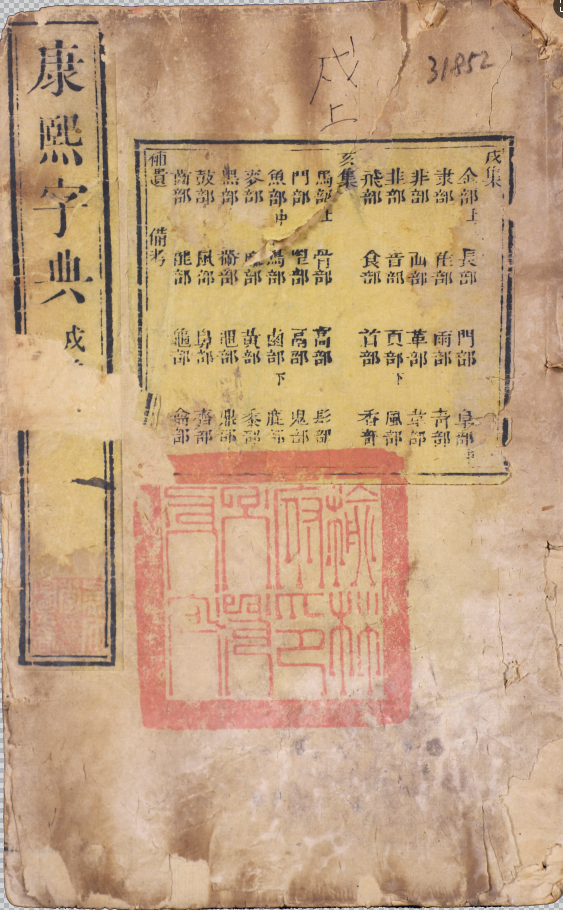 31852
戌上
戌集
金部上 長部 門部 阜部中
隶部 隹部 雨部 青部
非部 面部 革部 韋部
韭部 音部 頁部下 風部
飛部 食部 首部 香部
亥集
馬部上 骨部 高部 髟部
鬥部 鬯部 鬲部 鬼部
魚部中 鳥部 鹵部下 鹿部
麥部 麻部 黃部 黍部
黑部 黹部 黽部 鼎部
鼓部 鼠部 鼻部 齊部
齒部 龍部 龜部 龠部
補遺 備考
康熙字典 戌
榆林
府印